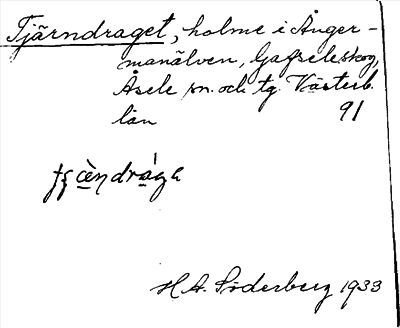 Tjärndraget, holme i Ånger-
manälven, Gafseleskog,
Åsele sn. och tg. Västerb.
län 91
H.A. Söderberg 1933